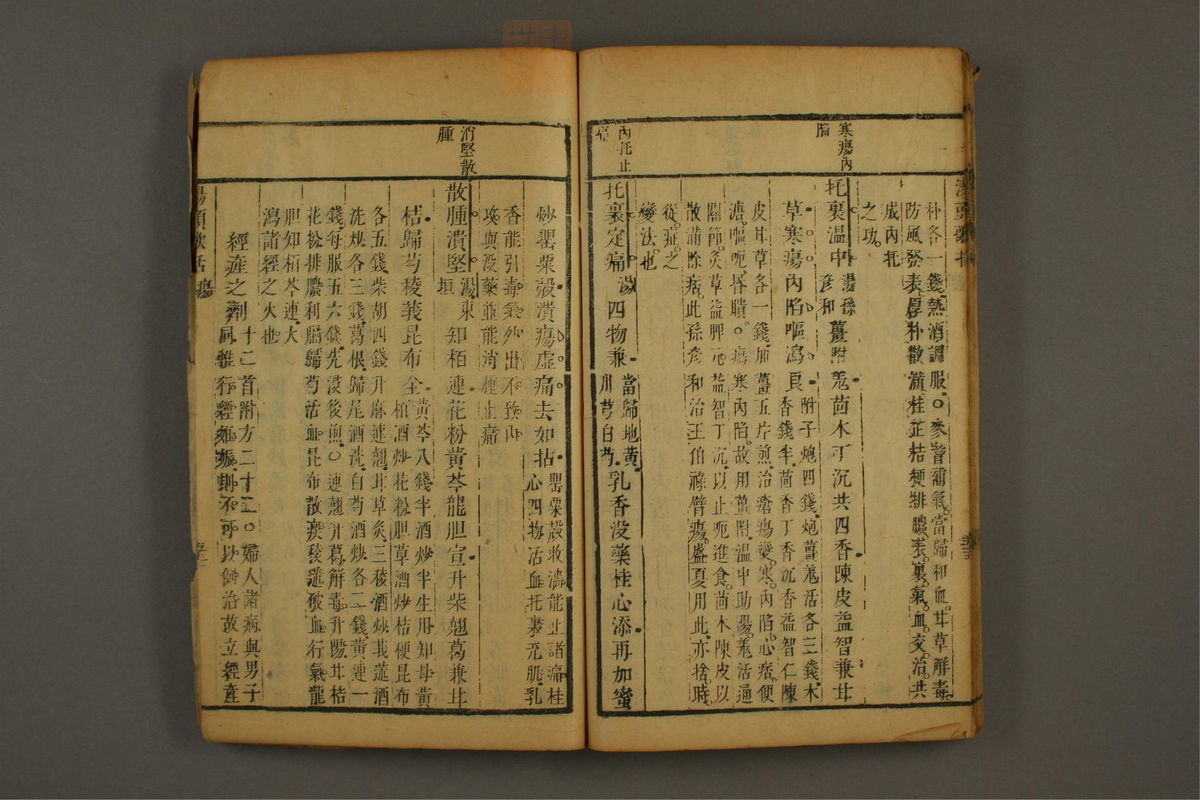 湯頭歌括
朴各一錢。熱酒調服。〇參耆補氣。當歸和血。甘草解毒。
防風發表。厚朴散滿。桂芷桔梗排膿。表裏氣血交治。共
成內托
之功。
寒瘍內陷
托裏温中湯孫彥和薑附羗茴木丁沉共四香陳皮益智兼甘
草寒瘍內陷嘔瀉良附子炮四錢炮薑羗活各三錢木香錢半茴香丁香沉香益智仁陳
皮甘草各一錢加薑五片煎治瘡瘍變寒內陷心痞便
溏嘔呃昏瞶。〇瘍寒內陷。故用薑附温中助陽羗活通
關節。炙草益脾元益智丁沉以止呃進食。茴木陳皮以
散滿除痞。此孫彥和治王伯祿臂瘍。盛夏用此。亦捨時
從症之
變法也
內托止痛
托裏定痛湯四物兼當歸地黃川芎白芍乳香没藥桂心添再加蜜
炒罌粟殼潰瘍虛痛去如拈罌粟殼收濇能止諸痛桂心四物活血托裏充肌乳
香能引毒氣外出不致內
攻與没藥並能消腫止痛
消堅散腫
散腫潰堅湯東垣知栢連花粉黃芩龍胆宣升柴翹葛兼甘
桔歸芍稜莪昆布全黃芩八錢半酒炒半生用知母黃栢酒炒花粉胆草酒炒桔梗昆布
各五錢柴胡四錢升麻連翹甘草炙三稜酒炒莪蒁酒
洗炒各三錢葛根歸尾酒洗白芍酒炒各二錢黃連一
錢每服五六錢先浸後煎〇連翹升葛解毒升陽甘桔
花粉排膿利膈歸芍活血昆布散痰稜蒁破血行氣龍
胆知栢芩連大
瀉諸經之火也
經產之劑十二首附方二十二〇婦人諸病與男子同惟行經妊娠則不可以例治故立經產
湯頭歌括 瘍